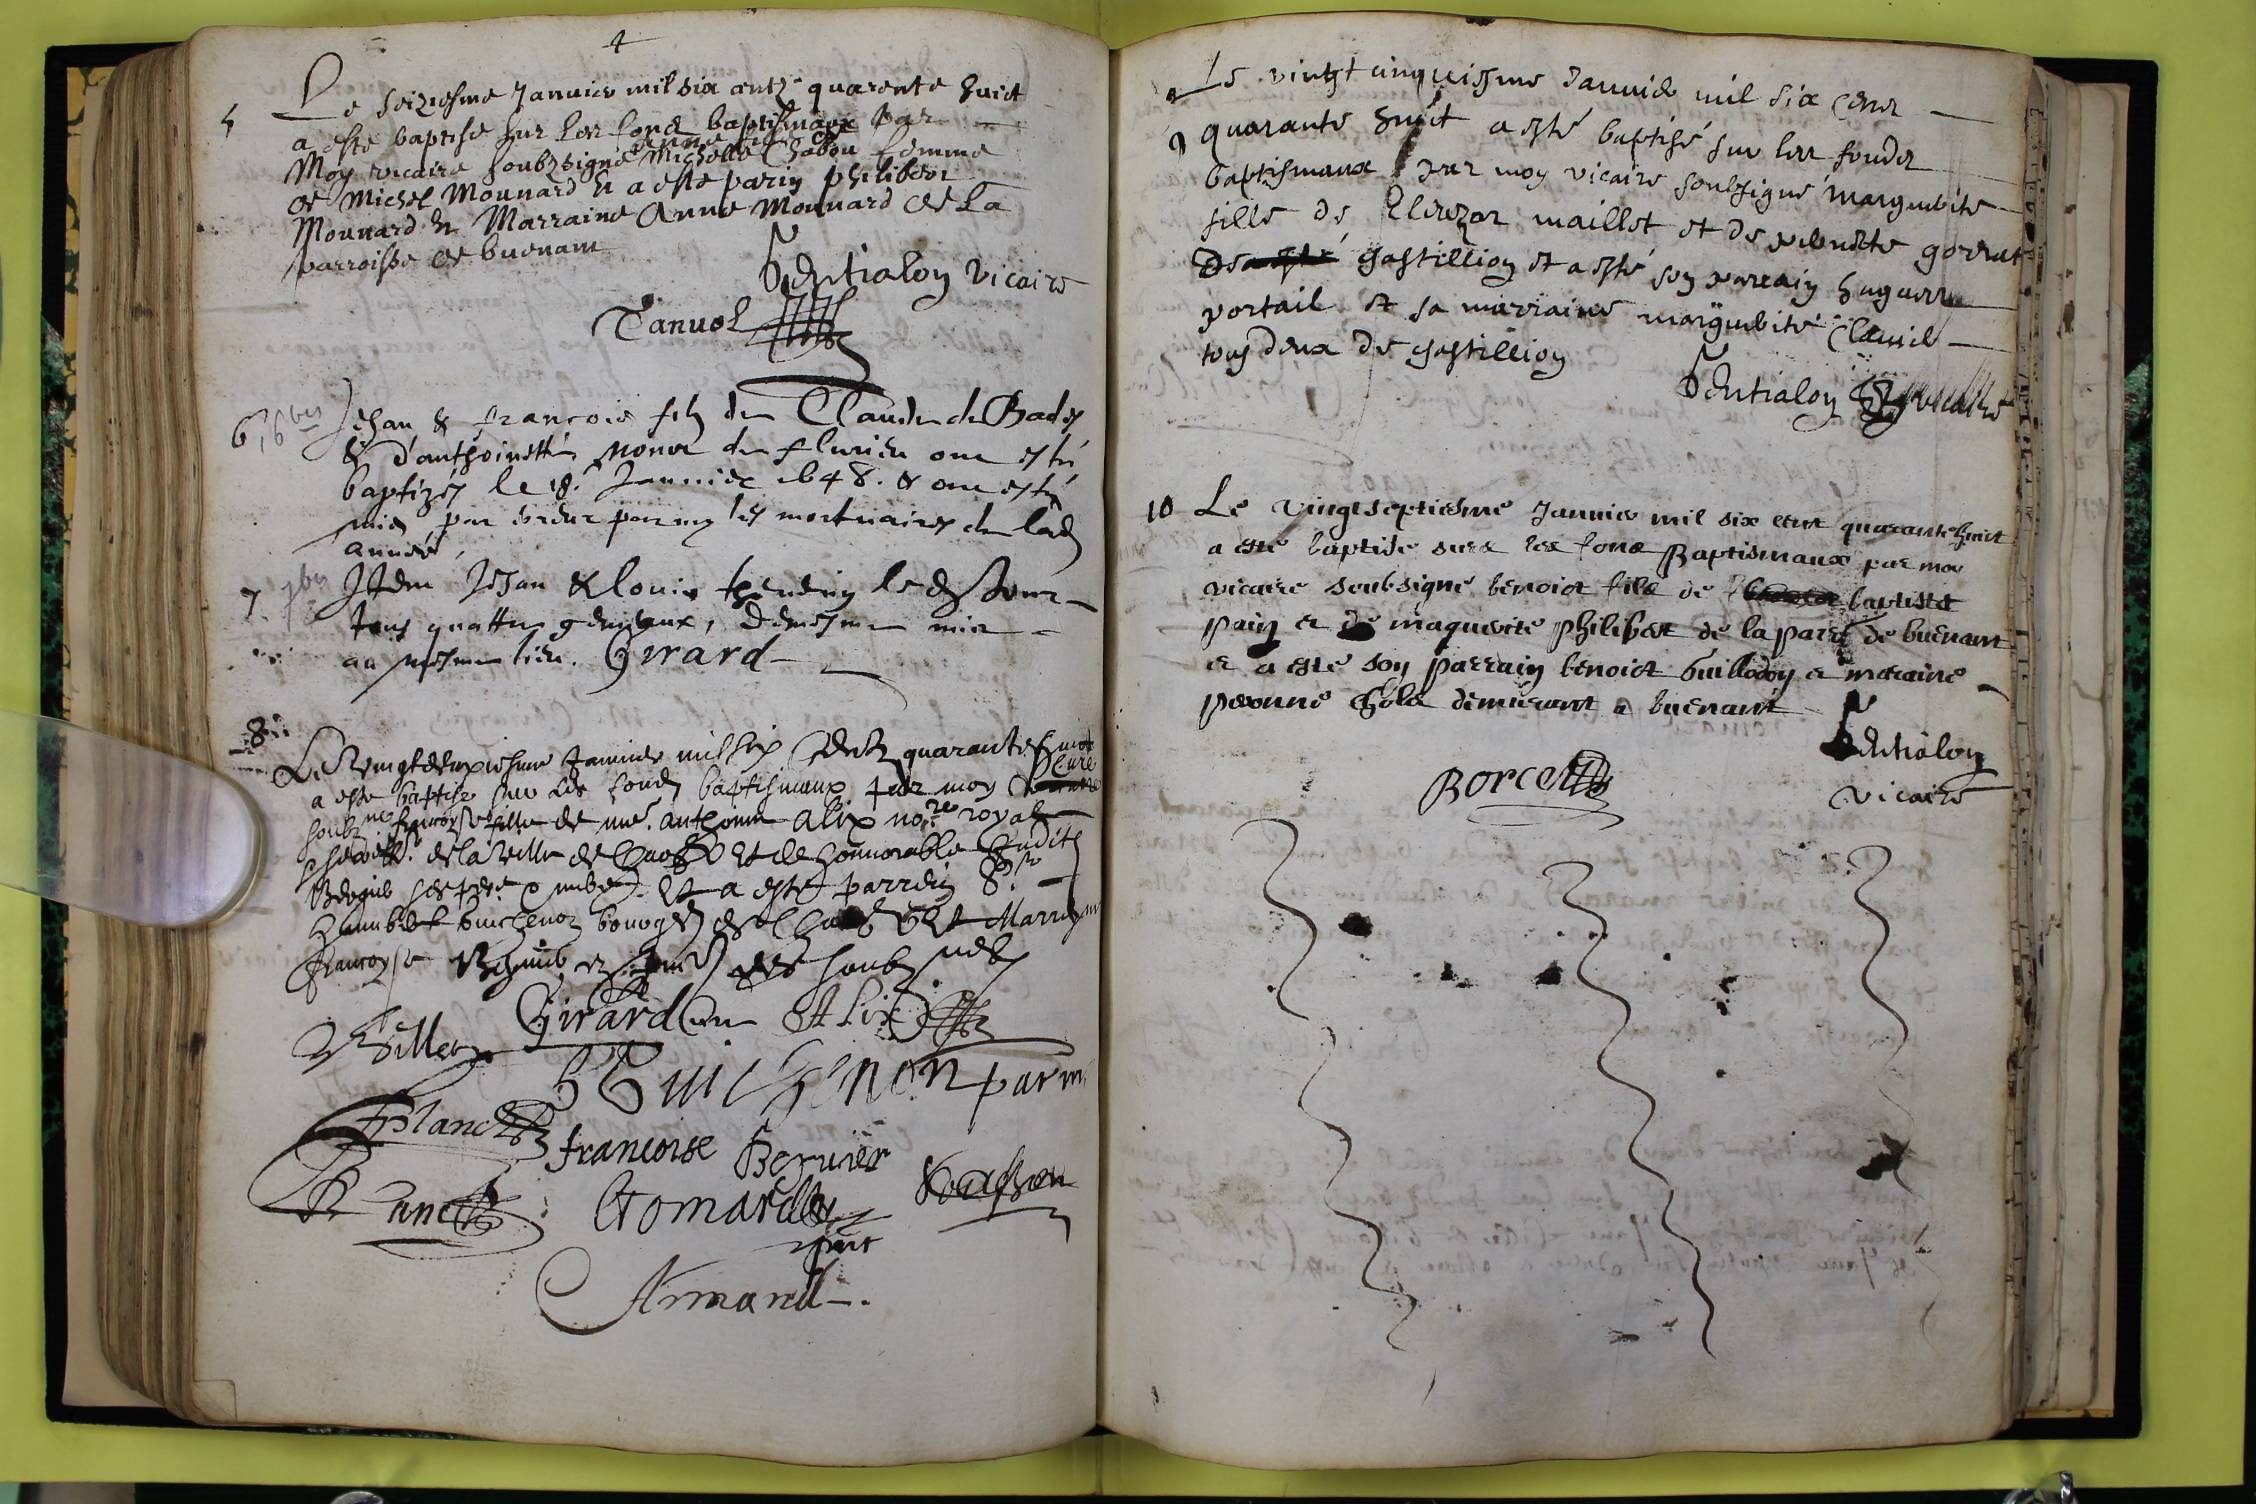 4
5
Le seiziesme Janvier mil six centz quarente huict
a esté baptisé sur les fonds baptismaux par
Moy vicaire soubzsigné Michelle Chabou femme
de Michel Mounard Et a esté parin philibert
Mounard Et Marraine Anne Mounard de la
parroisse de buenant
Dentialon vicaire
Tanuol
6, 6bis
Jehan & francois filz de Claude de Bades
& d'anthoinette monet de flurieu ont esté
baptizés le 18e Janvier 1648. & ont esté
mis par erreur parmy les mortuaires de lad
année,
7. 7bis
Item Jehan & Louis
tous quattre gemeaux, de mesme mis
au mesme lieu. Girard
8
Le Vingtdeuxiesme Janvier mil six Centz quarante huict
a esté baptisé sur les fondz baptismaux par moy Curé
soubzné francoyse fille de me. anthoine Alix nore royal
de la ville de et de honnorable Judith
Bernier ses pere & mere Et a esté parrein Sr
humbert Guichenon bourgeois de Et Marreyne
francoyse Bernier soubznes
Girard Curé Alix
Villet
H Guichenon parin
Blanc
francoise Bernier
Gomard
pnt
Armand
9
Le vingt cinquiesme Janvier mil six Cent
quarante huict a esté baptisé sur les fondz
baptismaux par moy vicaire soubsigné marguerite
fille de Eleazar maillet et de gorrat
Chastillion et a esté son parrain hugues
portail et sa marraine marguerite Clavel
tous deux de chastillion
Dentialon vicaire
10
Le vingtseptiesme Janvier mil six cent quarantehuict
a esté baptise sur les fons Baptismaux par moy
vicaire soubsigné benoict filz de baptiste
pain et de maguerite philibert de la parse de buenant
et a esté son parrain benoict Guillodon et maraine
peronne Chola demeurant a buenant
Dentialon
vicaire
Borcet